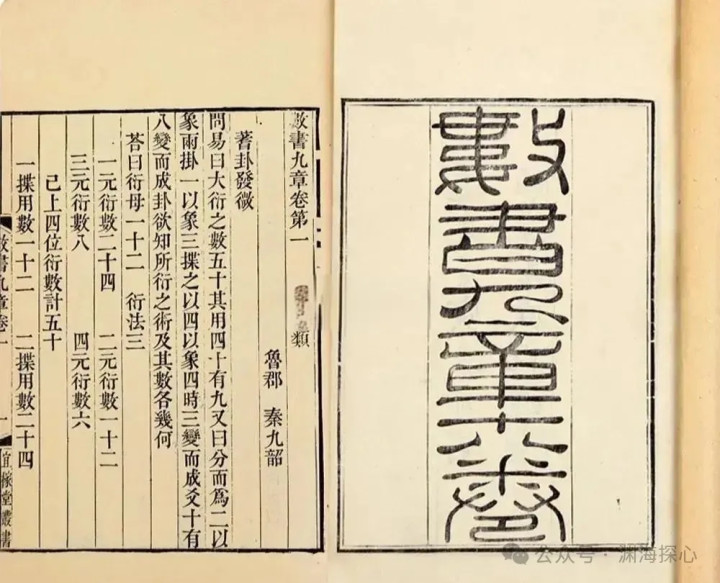 數書九章十八卷
數書九章卷第一
類
魯郡 秦九韶
蓍卦發微
問易曰大衍之數五十其用四十有九又曰分而爲二以
象兩掛一以象三揲之以四以象四時三變而成爻十有
八變而成卦欲知所衍之術及其數各幾何
荅曰衍母一十二 衍法三
一元衍數二十四 二元衍數一十二
三元衍數八 四元衍數六
已上四位衍數計五十
一揲用數一十二 二揲用數二十四
數書九章卷一 一 宜稼堂叢書
公众号·渊海探心